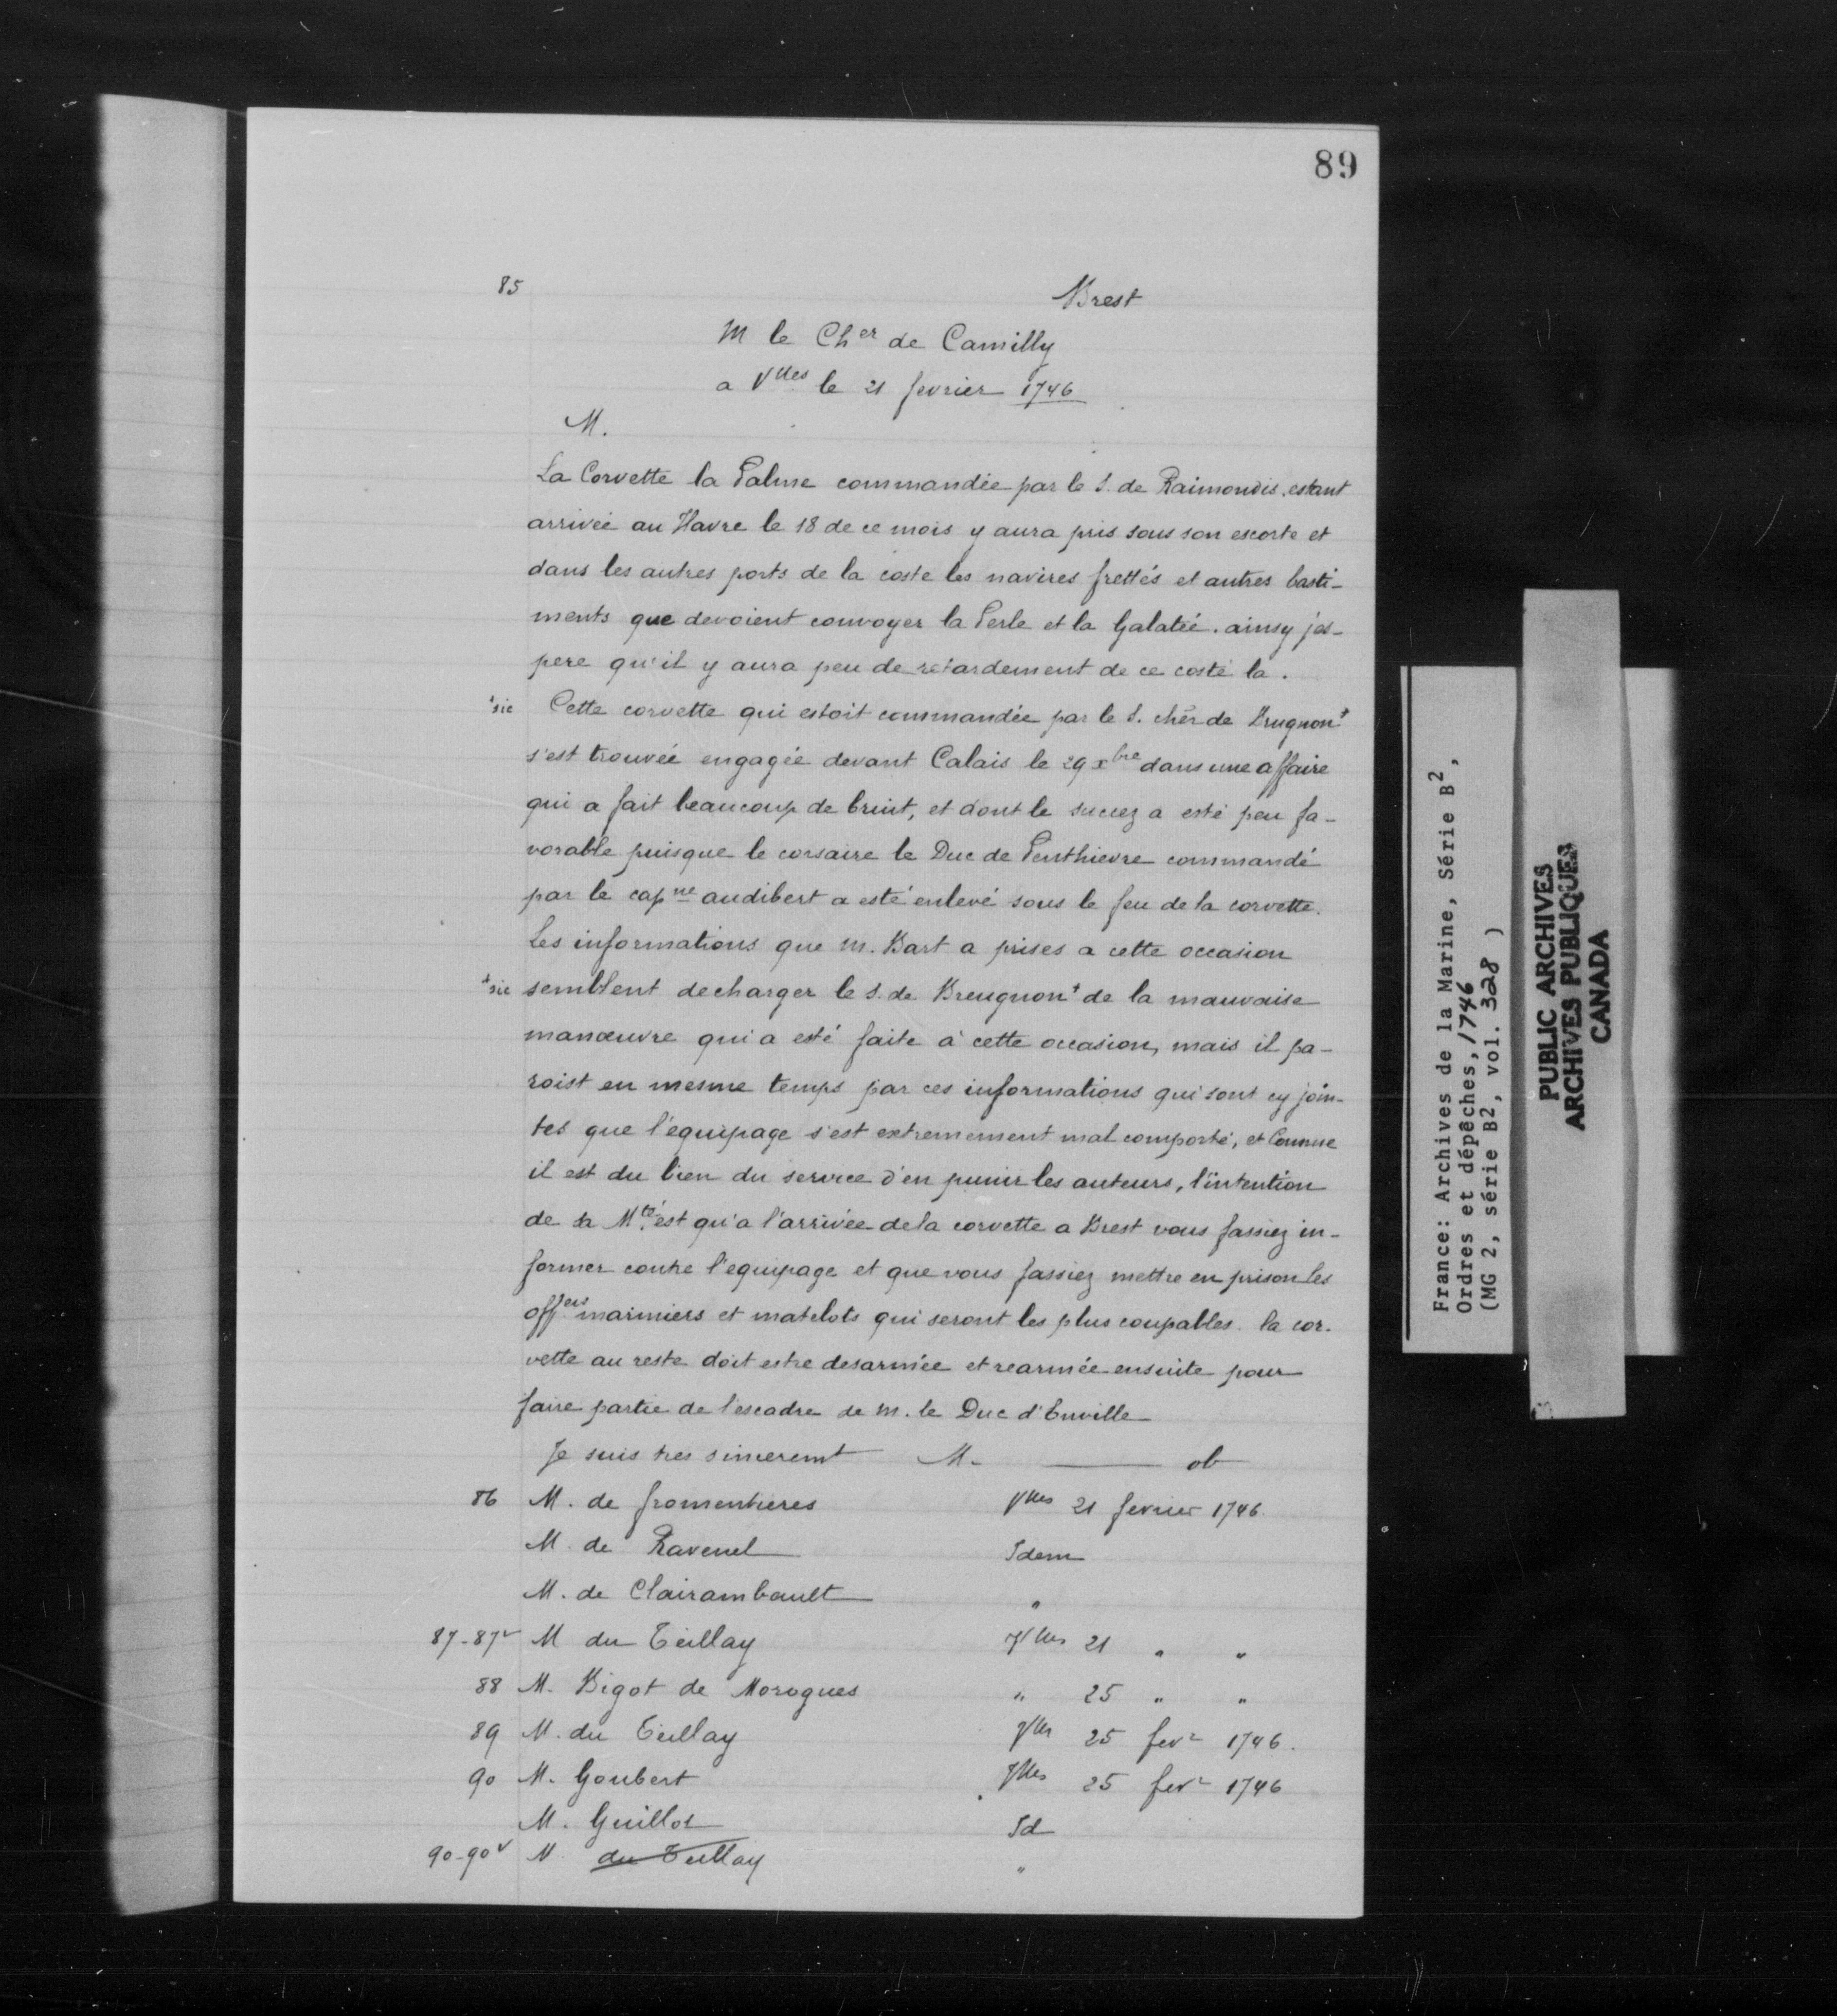 89
85
Brest
M le Cher de Camilly
a Vlles le 21 fevrier 1746
M.
La Corvette la Palme commandée par le S. de Raimondis, estant
arrivée au Havre le 18 de ce mois y aura pris sous son escorte et
dans les autres ports de la coste les navires frettés et autres basti-
ments que devoient convoyer la Perle et la Galatée. ainsy j'es-
pere qu'il y aura peu de retardement de ce costé la.
+sic Cette corvette qui estoit commandée par le S. cher de Brugnon+
s'est trouvée engagée devant Calais le 29 xbre dans une affaire
qui a fait beaucoup de bruit, et dont le succez a esté peu fa-
vorable puisque le corsaire le Duc de Penthievre commandé
par le capne audibert a esté enlevé sous le feu de la corvette.
Les informations que M. Bart a prises a cette occasion
+sic semblent decharger le S. de Breugnon+ de la mauvaise
manœuvre qui a esté faite à cette occasion, mais il pa-
roist en mesme temps par ces informations qui sont cy join-
tes que l'equipage s'est extremement mal comporté, et Comme
il est du bien du service d'en punir les auteurs, l'intention
de sa Mté est qu'a l'arrivée de la corvette a Brest vous fassiez in-
former contre l'equipage et que vous fassiez mettre en prison les
offers mariniers et matelots qui seront les plus coupables. la cor-
vette au reste doit estre desarmée et rearmée ensuite pour
faire partie de l'escadre de M. le Duc d'Enville
Je suis tres sinceremt M. ob
86 M. de fromentieres Vlles 21 fevrier 1746.
M. de Ravenel Idem
M. de Clairambault "
87-87v M du Teillay Vlles 21 " "
88 M. Bigot de Morogues " 25 " "
89 M. du Teillay Vlles 25 fevr 1746.
90 M. Goubert Vlles 25 fevr 1746
M. Guillot Id
90-90v M. du Teillay "
France: Archives de la Marine, Série B2,
Ordres et dépêches, 1746
(MG 2, série B2, vol. 328 )
PUBLIC ARCHIVES
ARCHIVES PUBLIQUES
CANADA